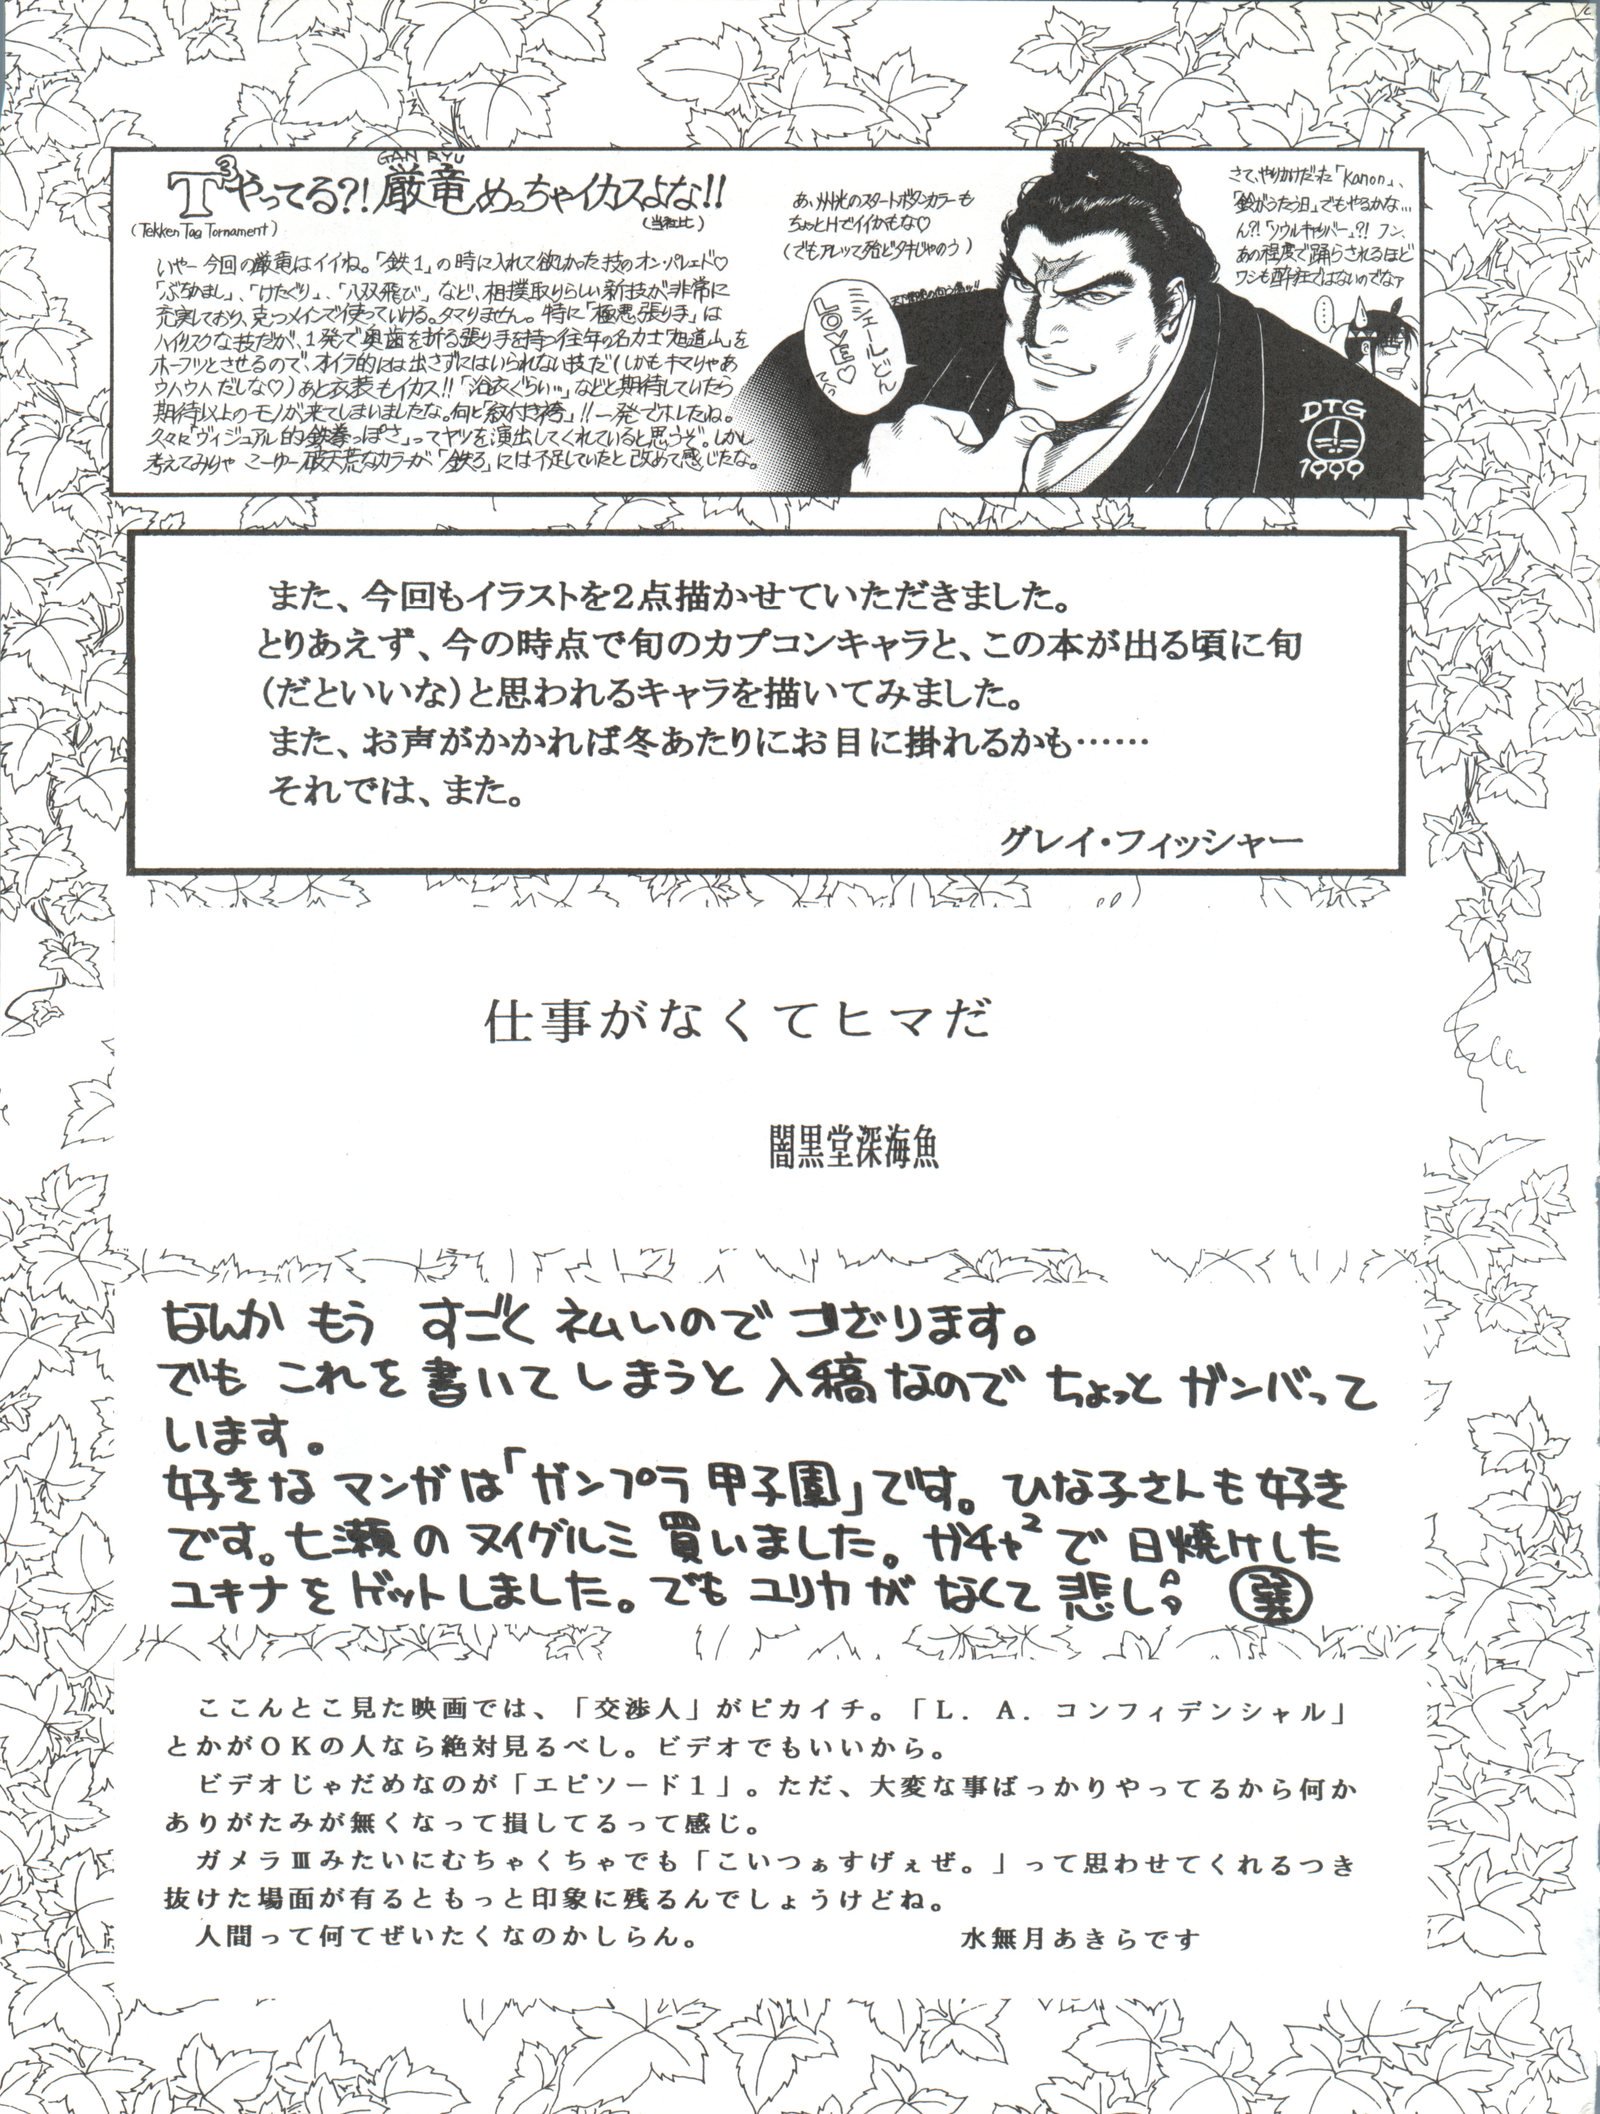 GAN RYU
T³やってる?! 厳竜めっちゃイカスよな!!
(Tekken Tag Tornament)
(当社比)
いやー今回の厳竜はイイね。「鉄1」の時に入れて欲しかった技のオン・パレード♡
「ぶちかまし」、「けたぐり」、「八双飛び」など、相撲取りらしい新技が非常に
充実しており、克つメインで使っていける。タマりません。特に「極悪張り手」は
ハイリスクな技だが、1発で奥歯を折る張り手を持つ往年の名力士「旭道山」を
ホーフツとさせるので、オイラ的には出さずにはいられない技だ(しかもキマりゃあ
ウハウハだしな♡)あと衣装もイカス!!「浴衣ぐらい…」などと期待していたら
期待以上のモノが来てしまいましたな。何と「紋付き袴」!!一発でホレたね。
久々に「ヴィジュアル的鉄拳っぽさ」ってヤツを演出してくれていると思うぞ。しかし
考えてみりゃ こーゆー破天荒なカラーが「鉄3」には不足していたと改めて感じたな。
あ、州光のスタートボタンカラーも
ちょっとHでイイかもな♡
(でもアレって殆どタキじゃのう)
ミシェールどん
LOVE♡
さて、やりかけだった「Kanon」、
「鈴がうたう日」でもやるかな…
ん?!「ソウルキャリバー」?! フン、
あの程度で踊らされるほど
ワシも酔狂ではないのでなァ
DTG
1999
また、今回もイラストを2点描かせていただきました。
とりあえず、今の時点で旬のカプコンキャラと、この本が出る頃に旬
(だといいな)と思われるキャラを描いてみました。
また、お声がかかれば冬あたりにお目に掛れるかも……
それでは、また。
グレイ・フィッシャー
仕事がなくてヒマだ
闇黒堂深海魚
なんか もう すごく ネムいので ございります。
でも これを書いてしまうと入稿なので ちょっと ガンバって
います。
好きな マンガは「ガンプラ甲子園」です。 ひな子さんも好き
です。七瀬の ヌイグルミ 買いました。ガチャ²で 日焼けした
ユキナを ゲットしました。でも ユリカが なくて 悲し。
ここんとこ見た映画では、「交渉人」がピカイチ。「L.A.コンフィデンシャル」
とかがOKの人なら絶対見るべし。ビデオでもいいから。
ビデオじゃだめなのが「エピソード1」。ただ、大変な事ばっかりやってるから何か
ありがたみが無くなって損してるって感じ。
ガメラⅢみたいにむちゃくちゃでも「こいつぁすげぇぜ。」って思わせてくれるつき
抜けた場面が有るともっと印象に残るんでしょうけどね。
人間って何てぜいたくなのかしらん。
水無月あきらです